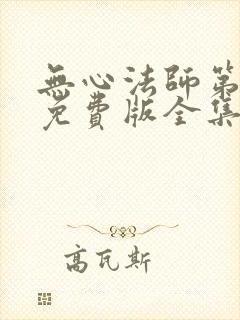 無心法師第
免費版全集
高瓦斯